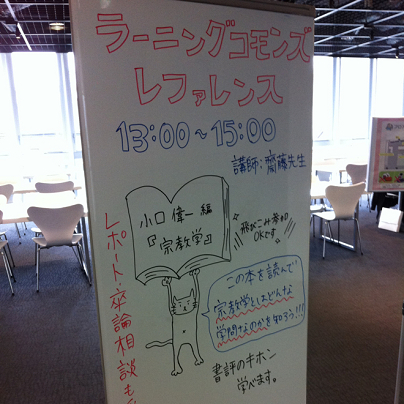 ラーニングコモンズ
レファレンス
13:00～15:00
講師:齋藤先生
小口偉一 編
『宗教学』
飛びこみ参加
OKです
この本を読んで
宗教学とはどんな
学問なのかを知ろう!!!
書評のキホン
学べます。
レポート・卒論相談も